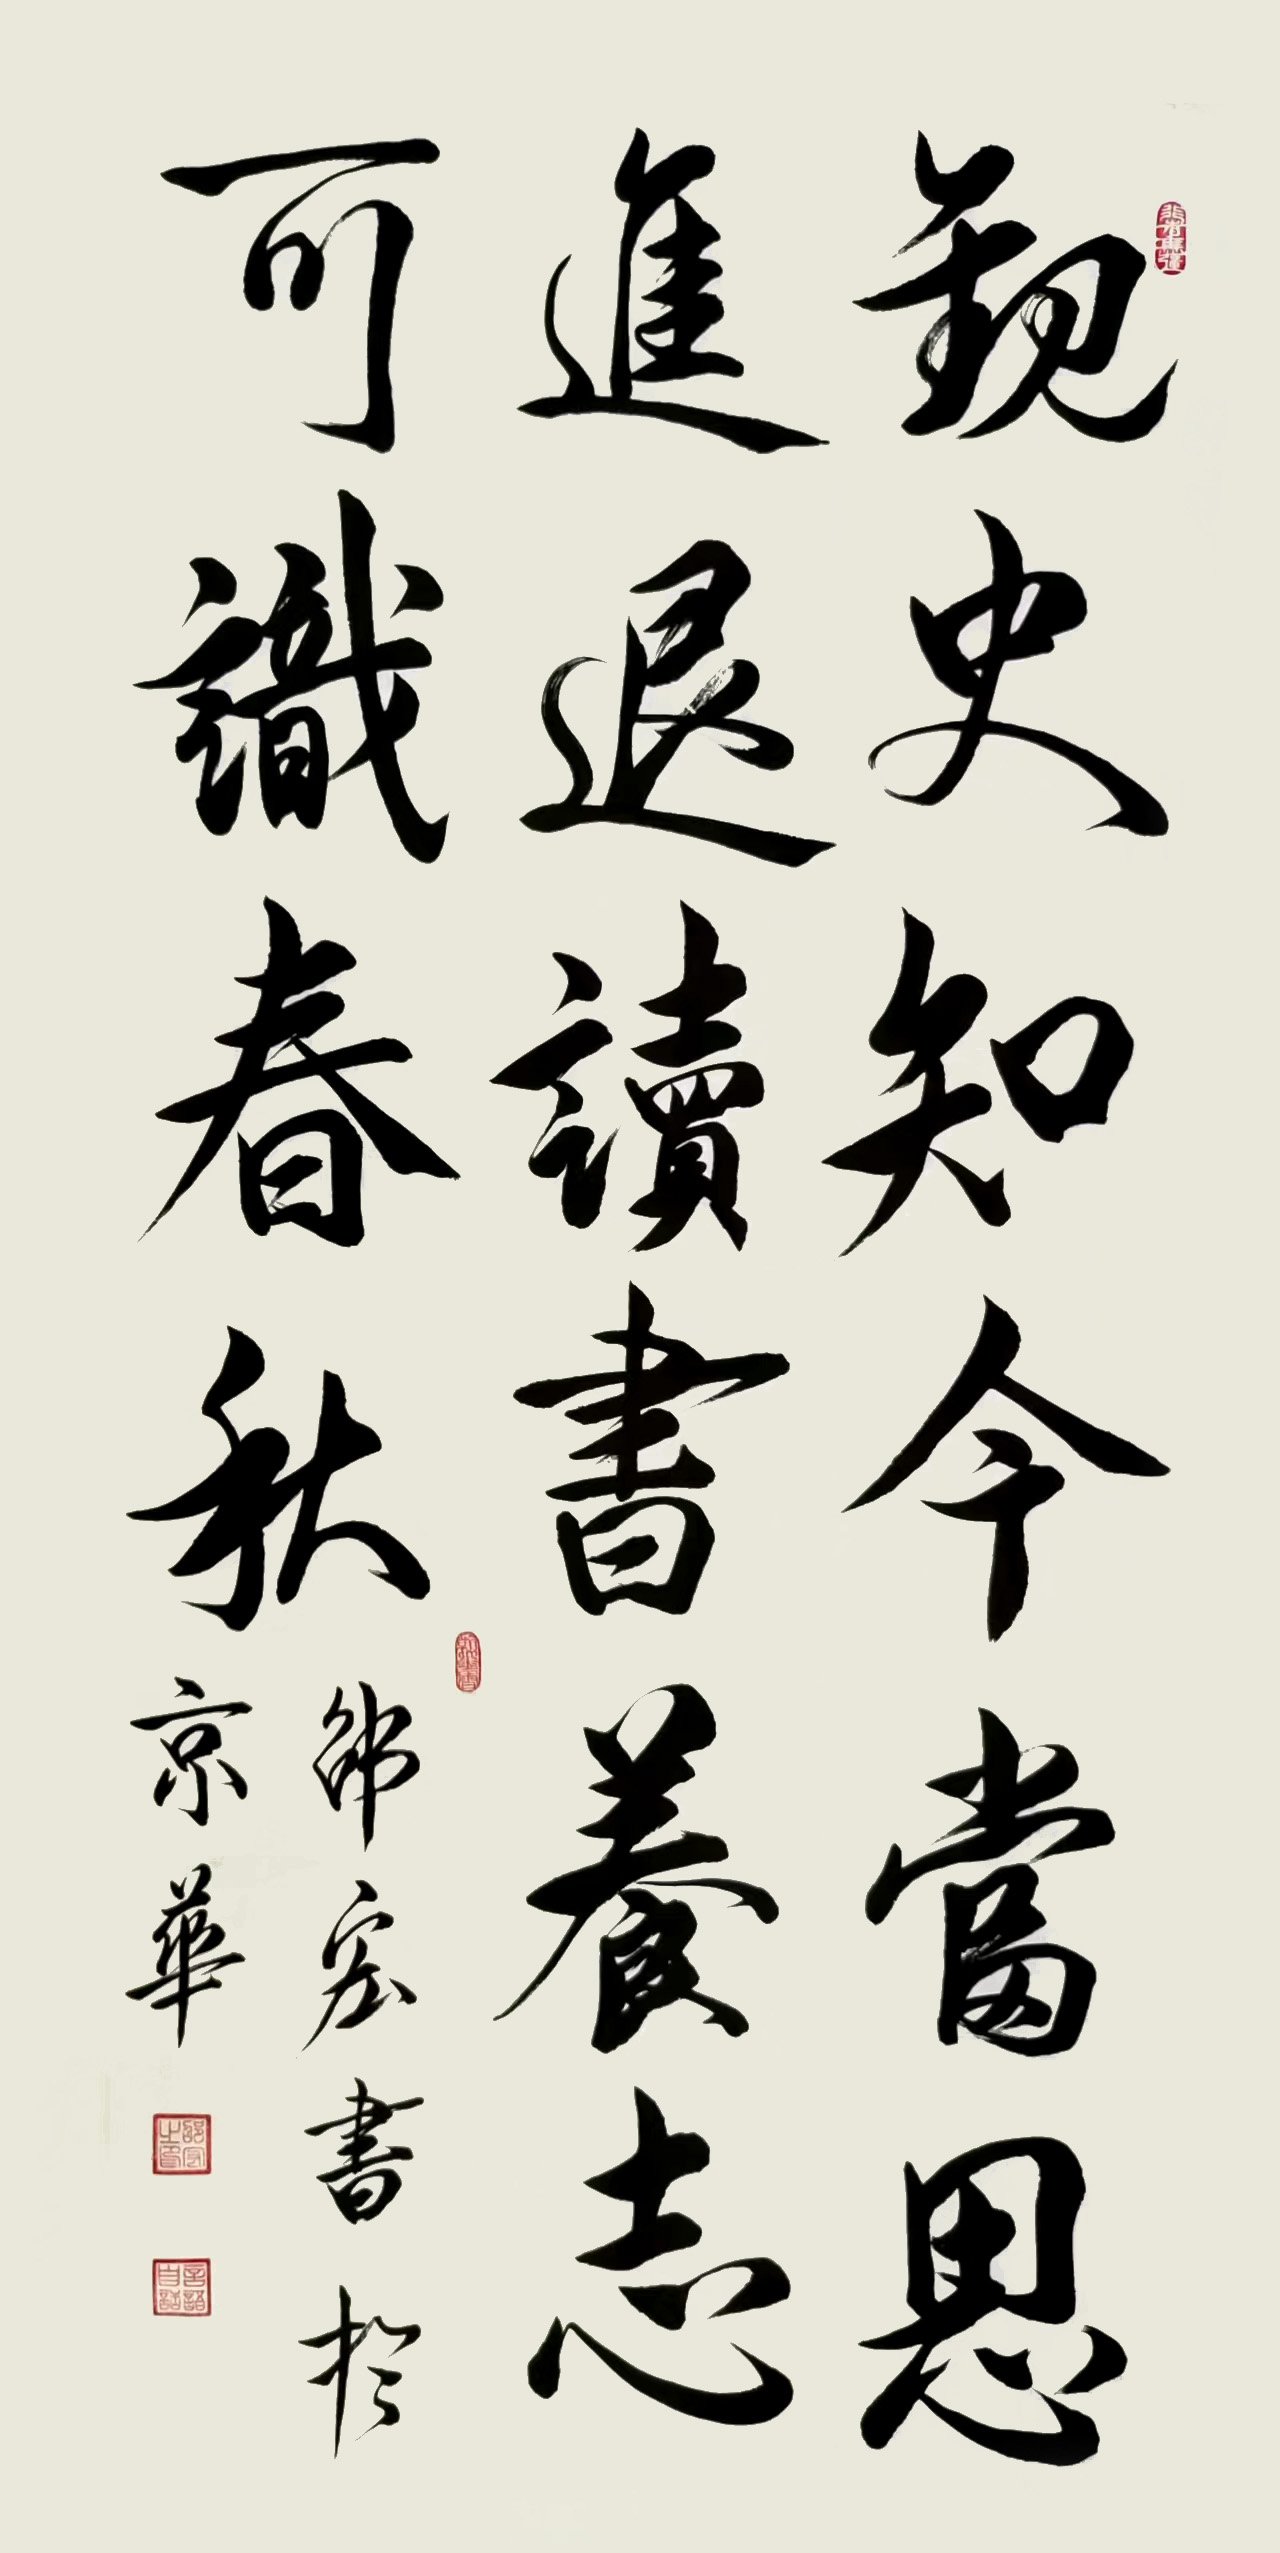 觀史知今當思
進退讀書養志
可識春秋
邵宏書於
京華